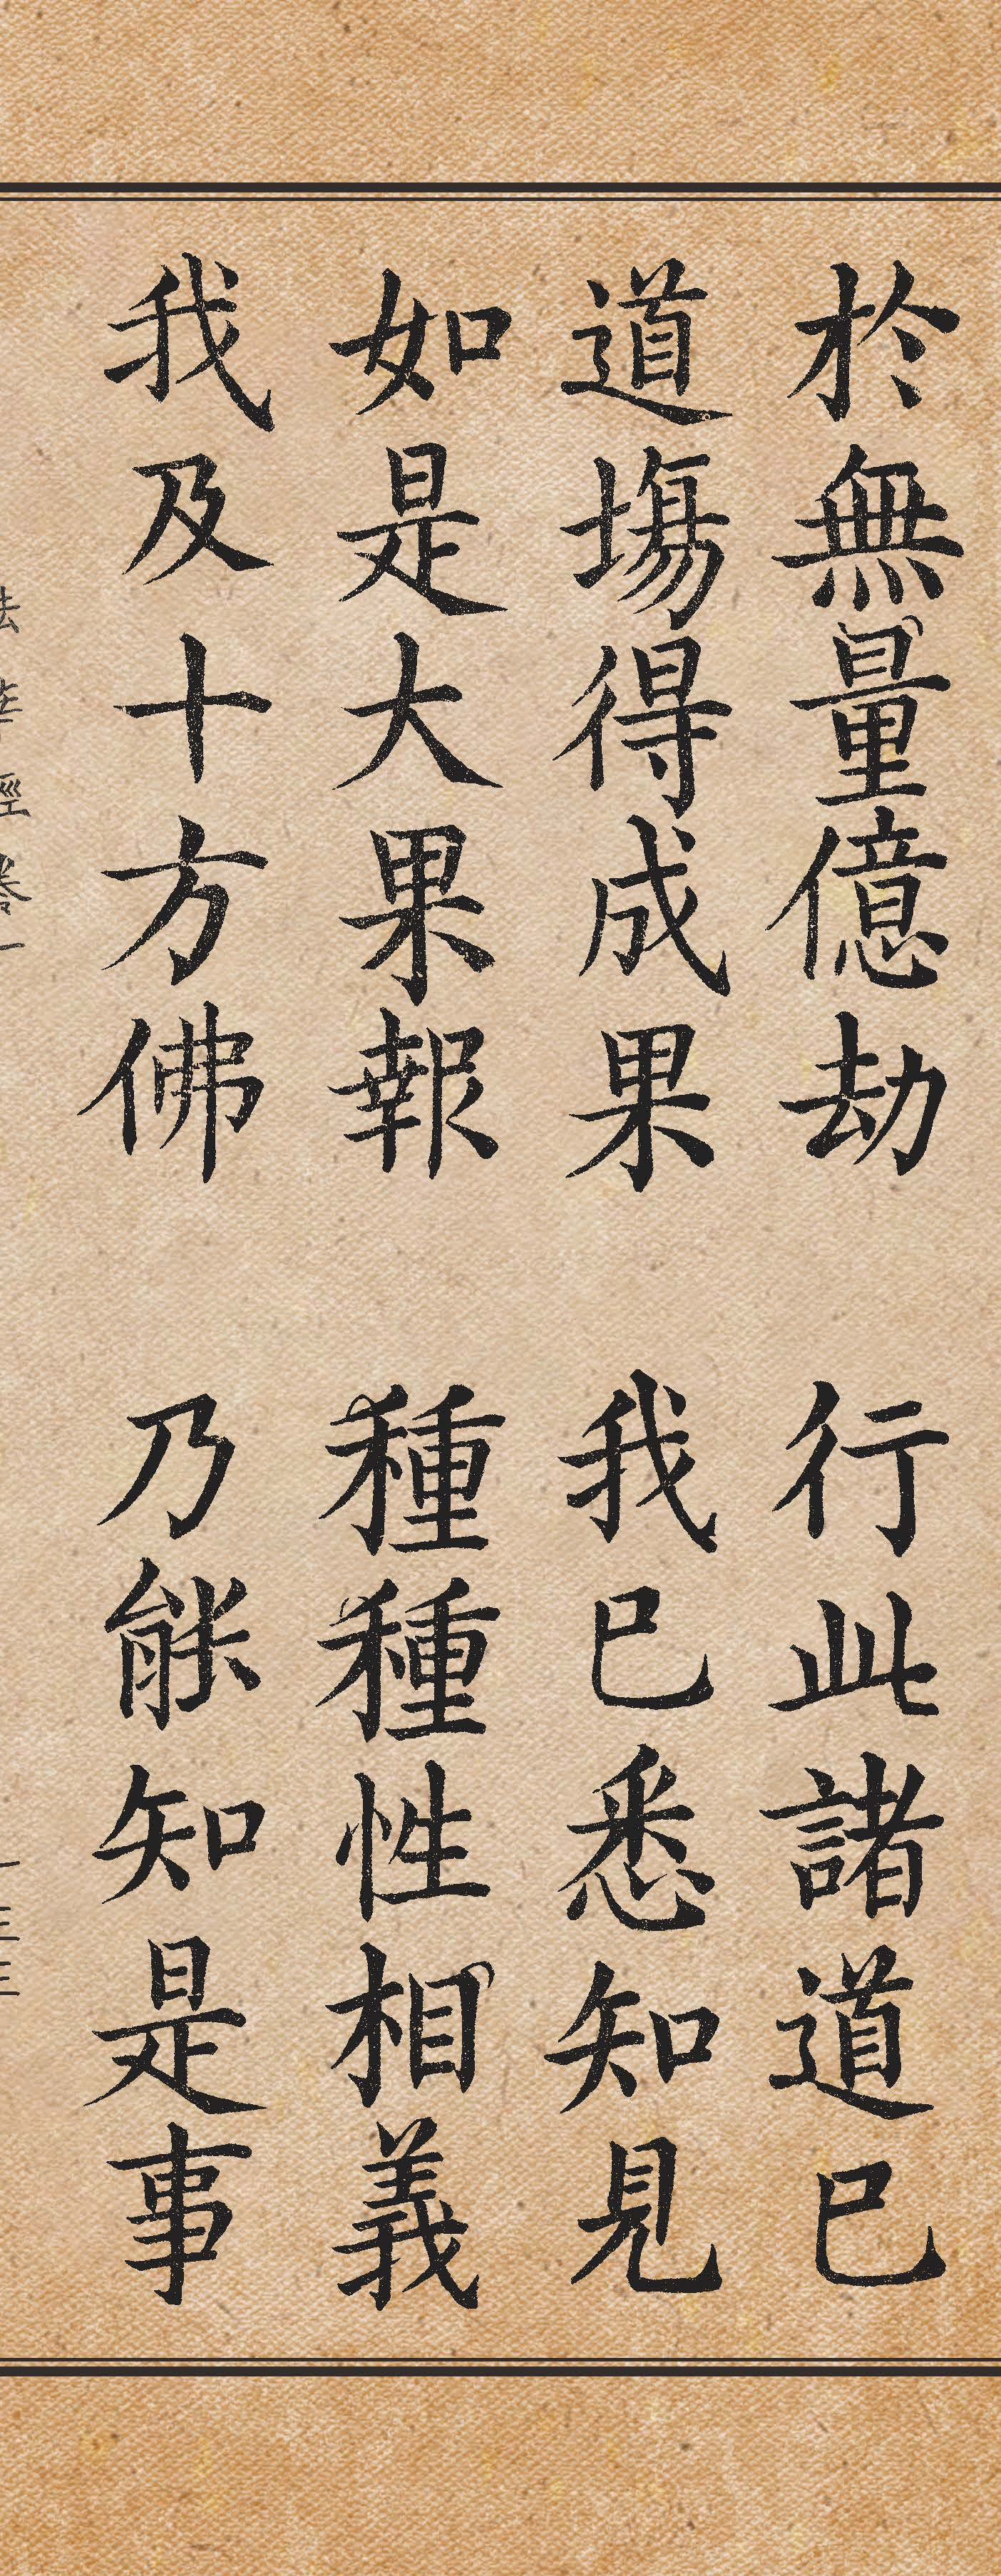 於無量億劫　行此諸道已
道塲得成果　我已悉知見
如是大果報　種種性相義
我及十方佛　乃能知是事
法華經卷一　一三三